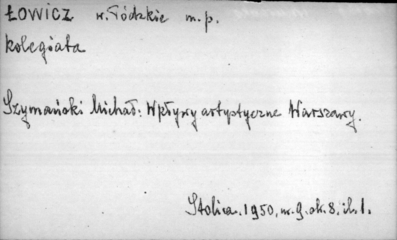 ŁOWICZ w. Łódzkie m.p.
kolegiata
Szymański Michał: Wpływy artystyczne Warszawy.
Stolica. 1950, nr. 9. ok. 8, il. 1.